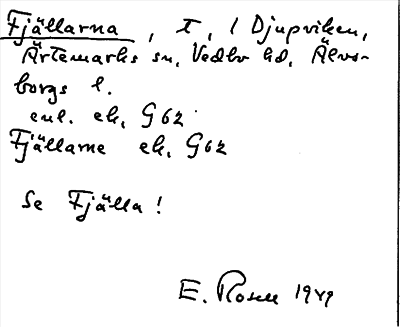 Fjällarna, T, i Djupviken,
Ärtemarks sn, Vedbo hd, Älvs-
borgs l.
enl. ek, G62
Fjällarne ek, G62
Se Fjälla!
E. Rosell 1949